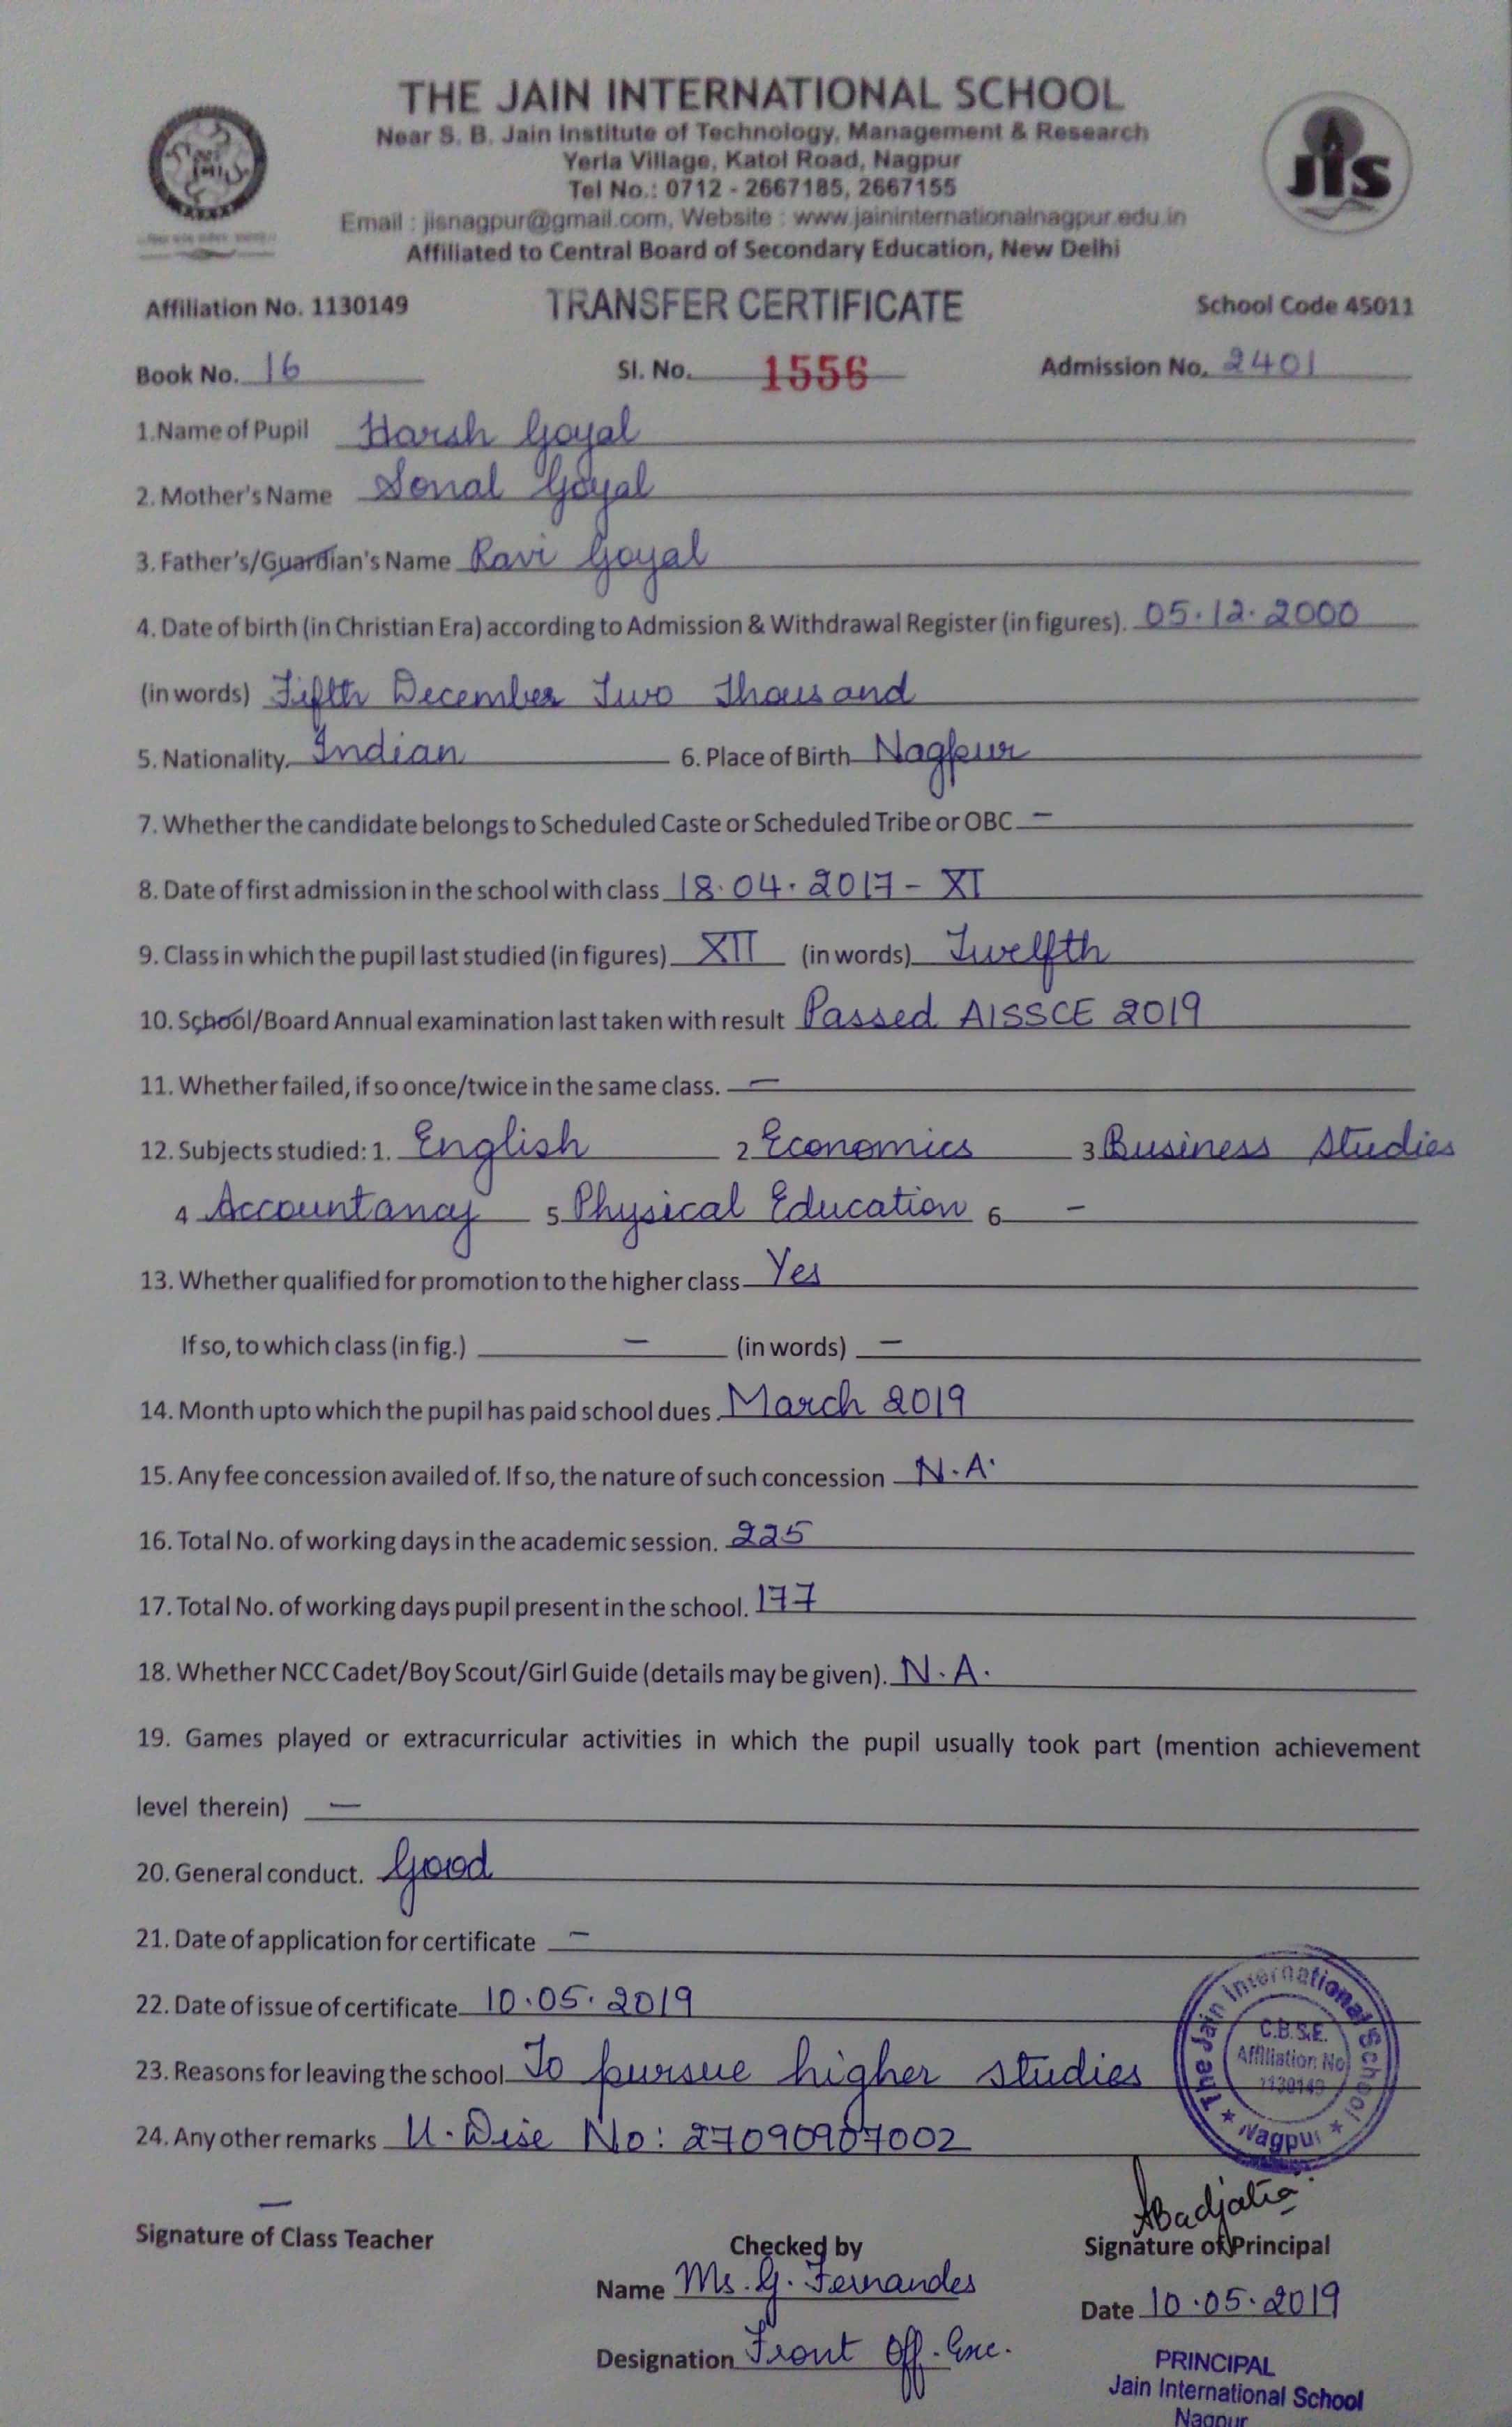 THE JAIN INTERNATIONAL SCHOOL
Near S. B. Jain Institute of Technology, Management & Research
Yerla Village, Katol Road, Nagpur
Tel No.: 0712 - 2667185, 2667155
Email : jisnagpur@gmail.com, Website : www.jaininternationalnagpur.edu.in
Affiliated to Central Board of Secondary Education, New Delhi
JIS
Affiliation No. 1130149 TRANSFER CERTIFICATE School Code 45011
Book No. 16 Sl. No. 1556 Admission No. 2401
1.Name of Pupil Harsh Goyal
2. Mother's Name Sonal Goyal
3. Father's/Guardian's Name Ravi Goyal
4. Date of birth (in Christian Era) according to Admission & Withdrawal Register (in figures). 05.12.2000
(in words) Fifth December Two Thousand
5. Nationality. Indian 6. Place of Birth Nagpur
7. Whether the candidate belongs to Scheduled Caste or Scheduled Tribe or OBC —
8. Date of first admission in the school with class 18.04.2017 - XI
9. Class in which the pupil last studied (in figures) XII (in words) Twelfth
10. School/Board Annual examination last taken with result Passed AISSCE 2019
11. Whether failed, if so once/twice in the same class. —
12. Subjects studied: 1. English 2 Economics 3 Business Studies
4 Accountancy 5 Physical Education 6 -
13. Whether qualified for promotion to the higher class Yes
If so, to which class (in fig.) — (in words) —
14. Month upto which the pupil has paid school dues. March 2019
15. Any fee concession availed of. If so, the nature of such concession N.A.
16. Total No. of working days in the academic session. 225
17. Total No. of working days pupil present in the school. 177
18. Whether NCC Cadet/Boy Scout/Girl Guide (details may be given). N.A.
19. Games played or extracurricular activities in which the pupil usually took part (mention achievement
level therein) —
20. General conduct. Good
21. Date of application for certificate —
22. Date of issue of certificate 10.05.2019
23. Reasons for leaving the school To pursue higher studies
24. Any other remarks U-Dise No: 27090907002
The Jain International School
C.B.S.E.
Affiliation No
1130149
* Nagpur *
—
Signature of Class Teacher Checked by Signature of Principal
Name Ms. G. Fernandes Date 10.05.2019
Designation Front Off. Exe.
PRINCIPAL
Jain International School
Nagpur